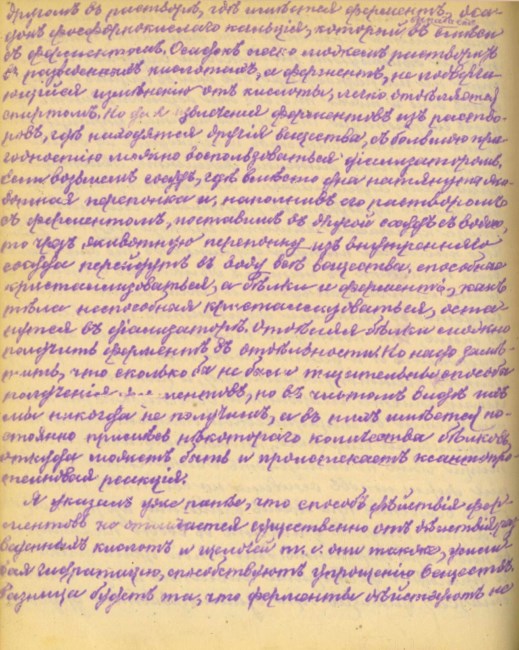 другомъ въ растворѣ, гдѣ имѣется ферментъ, оса-
докъ фосфорнокислаго кальція, который
съ ферментомъ. Осадокъ легко можемъ растворить
въ разведенныхъ кислотахъ, а ферментъ, не подверга-
ющійся измѣненію отъ кислоты, легко отдѣляется
спиртомъ. Но для извлеченія ферментовъ изъ раство-
ровъ, гдѣ находятся другія вещества, съ большою при-
годностію можно воспользоваться діализаторомъ.
Если возьмемъ сосудъ, гдѣ вмѣсто дна натянута жи-
вотная перепонка и, наполнивъ его растворомъ
съ ферментомъ, поставимъ въ другой сосудъ съ водою,
то чрезъ животную перепонку изъ внутренняго
сосуда перейдутъ въ воду всѣ вещества, способныя
кристаллизоваться, а бѣлки и ферментъ, какъ
тѣла неспособныя кристаллизоваться, оста-
нутся въ діализаторѣ. Отдѣляя бѣлки можно
получить ферментъ въ отдѣльности. Но надо замѣ-
тить, что сколько бы не были тщательны способы
полученія ферментовъ, но въ чистомъ видѣ ихъ
мы никогда не получимъ, а въ нихъ имѣется по-
стоянно примѣсь нѣкотораго количества бѣлковъ,
откуда можетъ быть и проистекаетъ ксантопро-
теиновая реакція.
Я указалъ уже ранѣе, что способъ дѣйствія фер-
ментовъ не отличается существенно отъ дѣйствія раз-
веденныхъ кислотъ и щелочей т. е. они также,
гидратацію, способствуютъ упрощенію веществъ.
Разница будетъ та, что ферменты дѣйствуютъ не